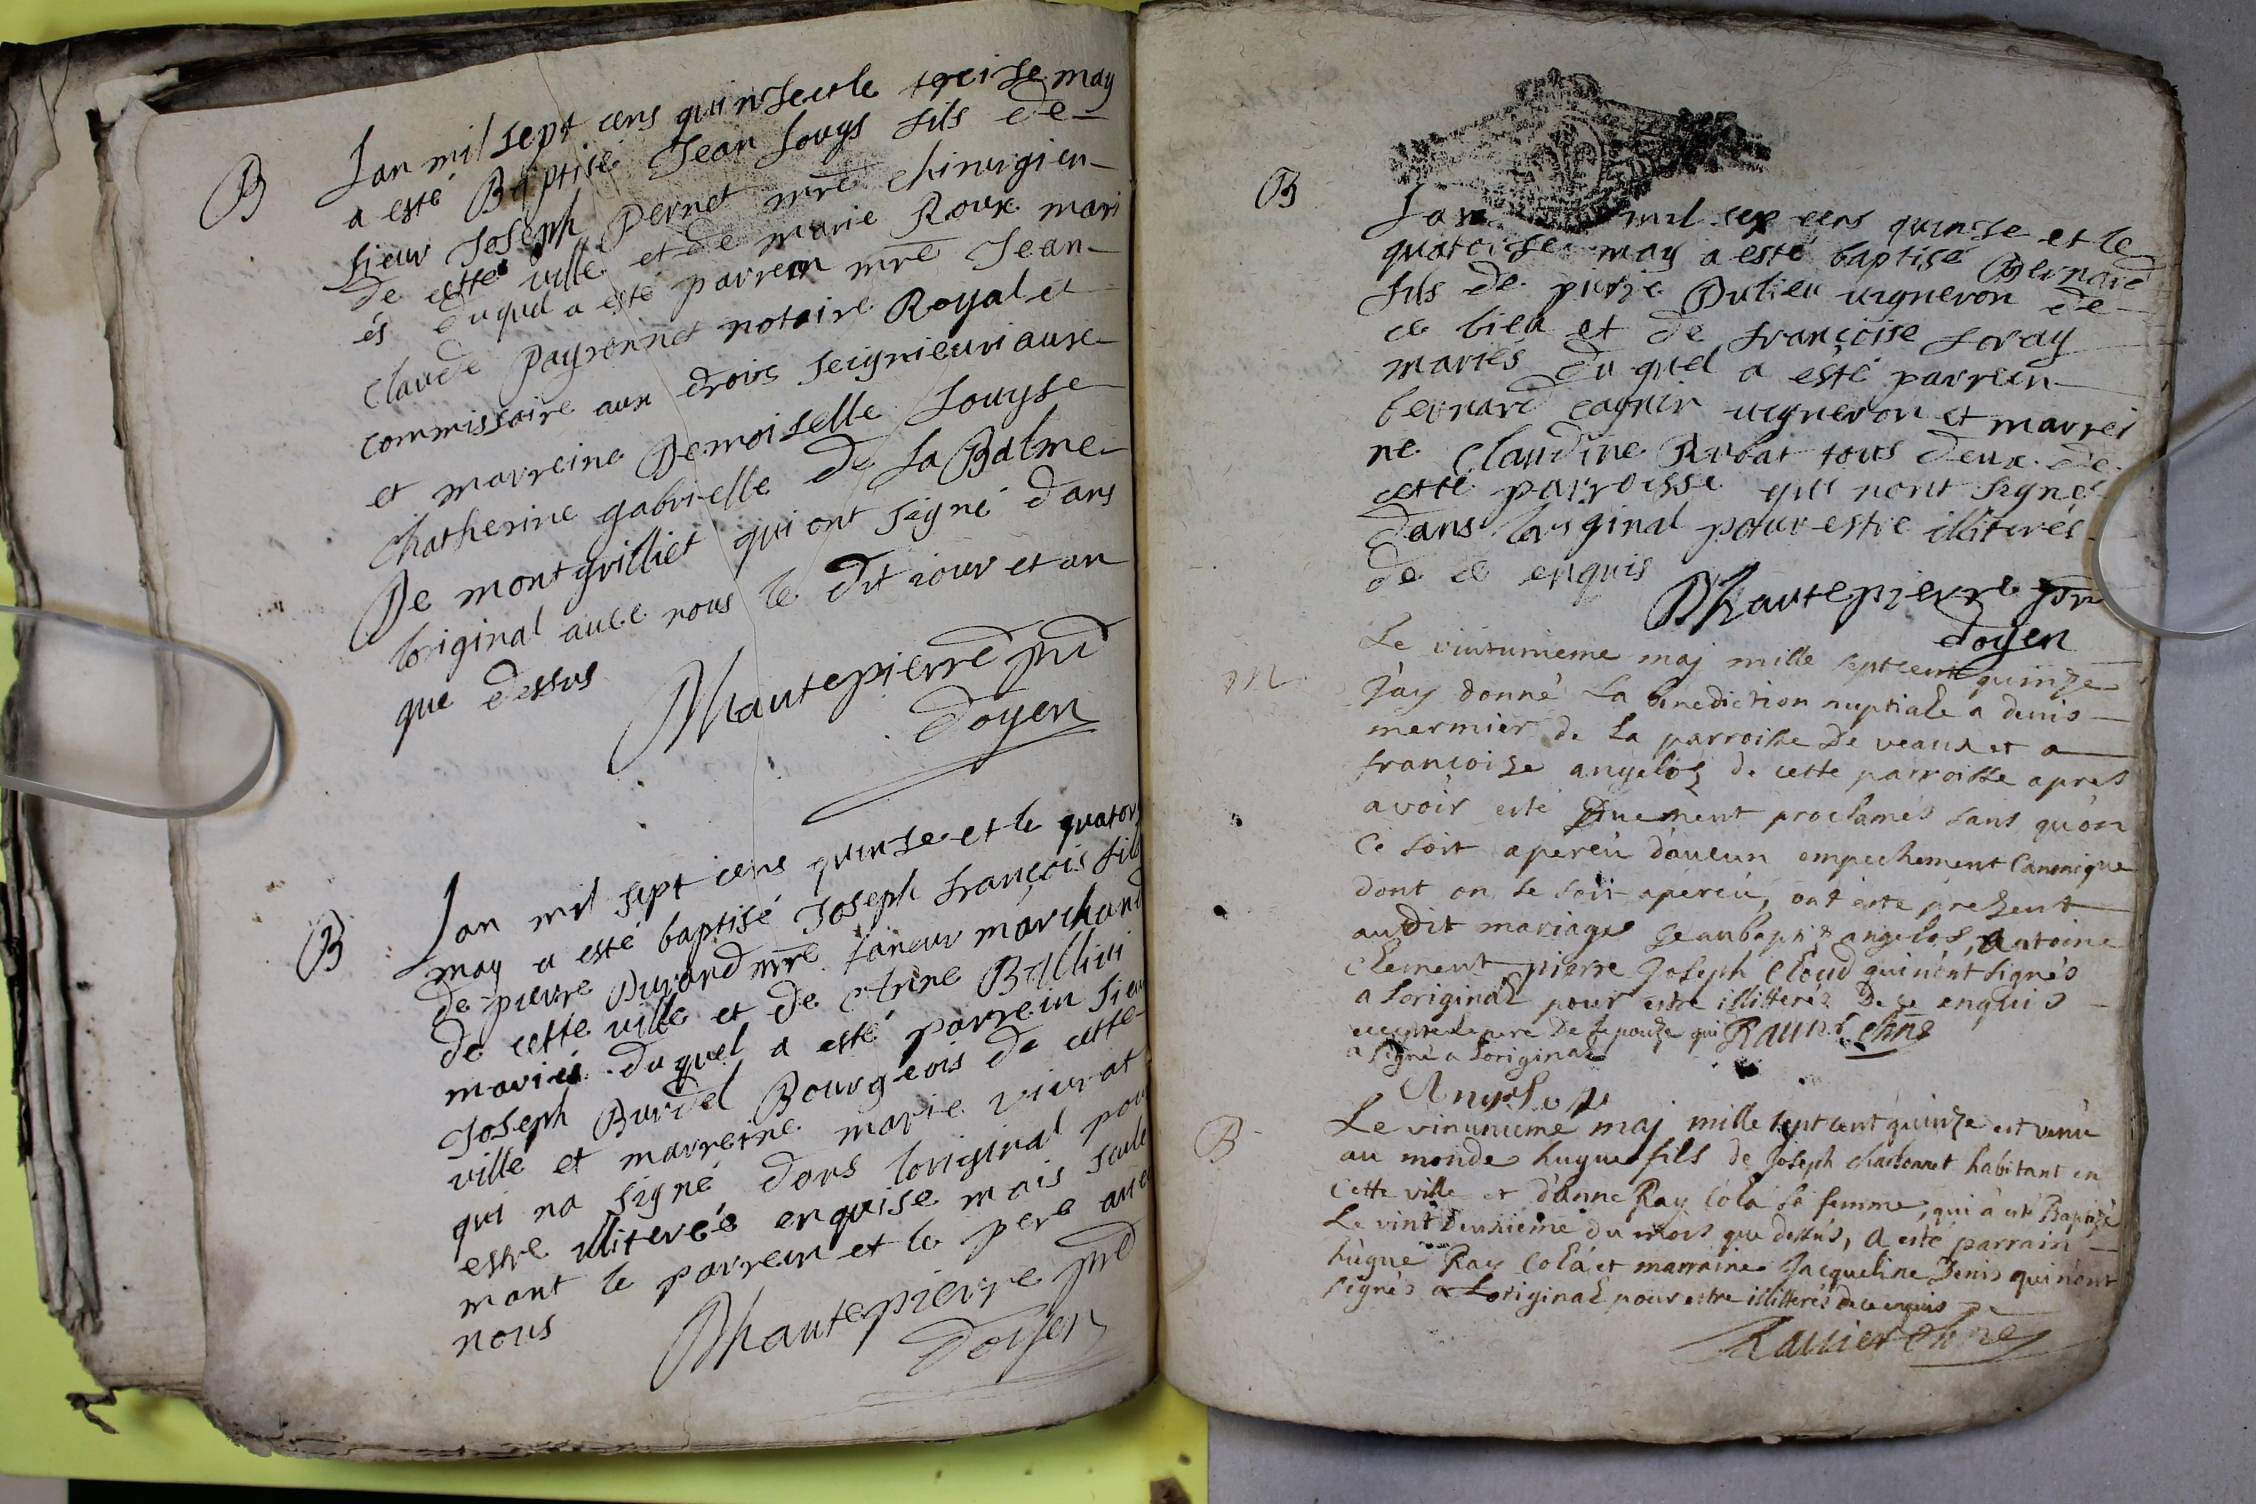 B
Lan mil sept cens quinse et le treise may
a esté Baptisé Jean Louys fils de
sieur Joseph Pernet mre chirurgien
de cette ville et de marie Roux mari
és duquel a esté parrein mre Jean
Claude Payronnet notaire Royal et
commissaire aux droits seigneuriaux
et marreine Demoiselle Louyse
Chatherine gabrielle de La Balme
De montgrilliet qui ont signé dans
loriginal avec nous le dit iour et an
que dessus
Dhautepierre
doyen
B
Lan mil sept cens quinse et le quator
may a esté baptisé Joseph françois fils
de pierre Durand mre taneur marchand
de cette ville et de
mariés duquel a esté parrein sieur
Joseph Burdel Bourgeois de cette
ville et marreine marie vivrat
qui na signé dans loriginal pour
estre illiterée enquise mais seule
mant le parrein et le pere avec
nous
Dhautepierre
doyen
B
Lan mil sep cens quinse et le
quatorse may a esté baptisé Bernard
fils de pierre Dulieu vigneron de
ce lieu et de françoise Loray
mariés du quel a esté parrein
bernard cagnin vigneron et marrei
ne Claudine Rubat tous deux de
cette parroisse qui nont signé
dans loriginal pour estre illiterés
de ce enquis
Dhautepierre
doyen
M
Le vintunieme maj mille septcent quinze
J'ay donné La benediction nuptiale a denis
mermier de La parroisse De veaux et a
francoise angelos de cette parroisse apres
avoir esté Duement proclamés sans qu'on
ce soit aperçû d'aucun empechement Canonique
dont on se soit aperçû, ont esté présent
audit mariage Jeanbaptiste angelos, Antoine
Clement pierre Joseph Cloud qui n'ont signés
a Loriginal pour estre illitterés De ce enquis
excepté le pere De Lepouze qui Ravier
a signé a Loriginal
Le vinunieme maj mille septcent quinze est venû
au monde hugue fils de Joseph charbonnet habitant en
Cette ville et d'anne Ray Cola sa femme, qui à eté Baptizé
Le vint deuxieme du mois que dessus, A esté parrain
hugue Ray Cola et marraine Jacqueline Denis qui n'ont
signés a Loriginal pour estre illitterés de ce enquis
B
Ravier